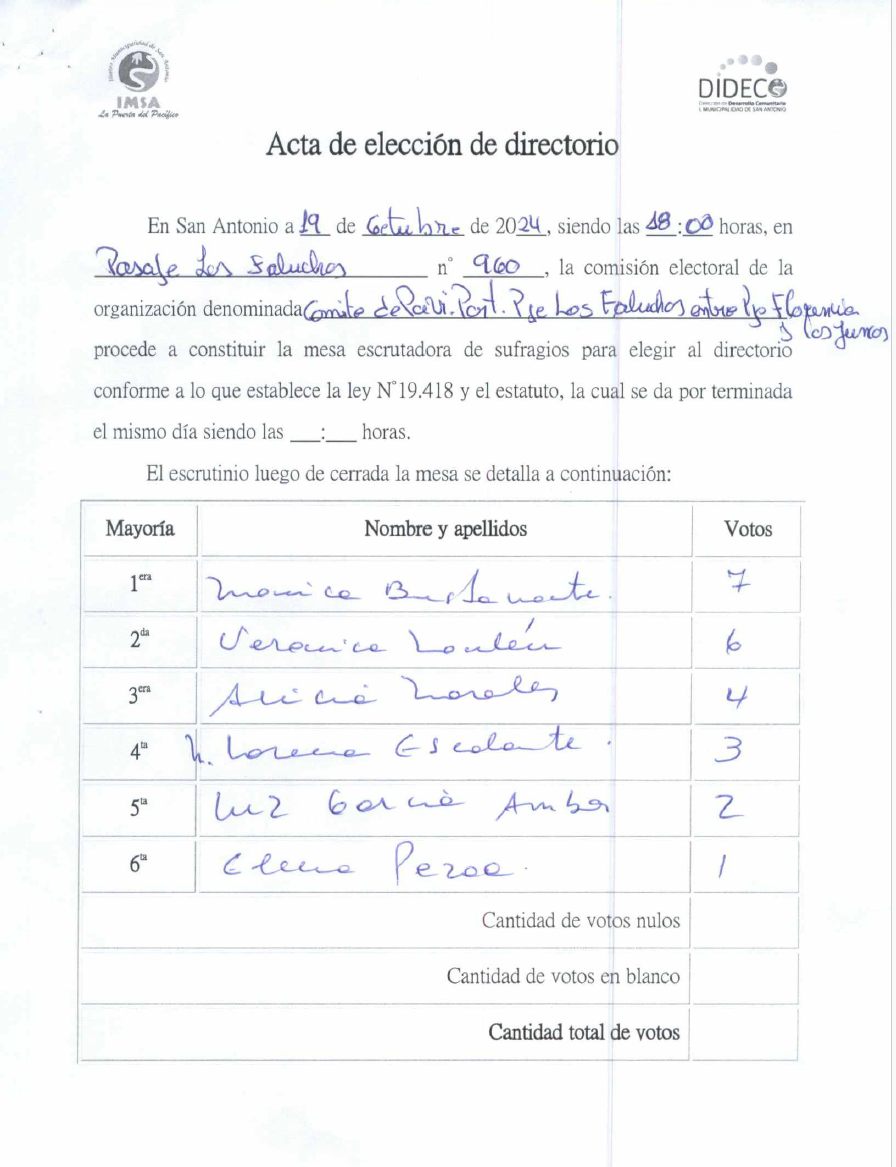 Ilustre Municipalidad de San Antonio
IMSA
La Puerta del Pacífico
DIDECO
Dirección de Desarrollo Comunitario
I. MUNICIPALIDAD DE SAN ANTONIO
Acta de elección de directorio
En San Antonio a 19 de Octubre de 2024, siendo las 18:00 horas, en
Pasaje Los Faluchos n° 960, la comisión electoral de la
organización denominada Comite de Pavi. Part. Pje Los Faluchos entre Pje Florencia
y los Juncos
procede a constituir la mesa escrutadora de sufragios para elegir al directorio
conforme a lo que establece la ley N°19.418 y el estatuto, la cual se da por terminada
el mismo día siendo las ___:___ horas.
El escrutinio luego de cerrada la mesa se detalla a continuación:
Mayoría Nombre y apellidos Votos
1era Monica Bustamante. 7
2da Veronica 6
3era Alicia Morales 4
4ta M. Lorena Escalante. 3
5ta Luz Garcia 2
6ta Elena 1
Cantidad de votos nulos
Cantidad de votos en blanco
Cantidad total de votos